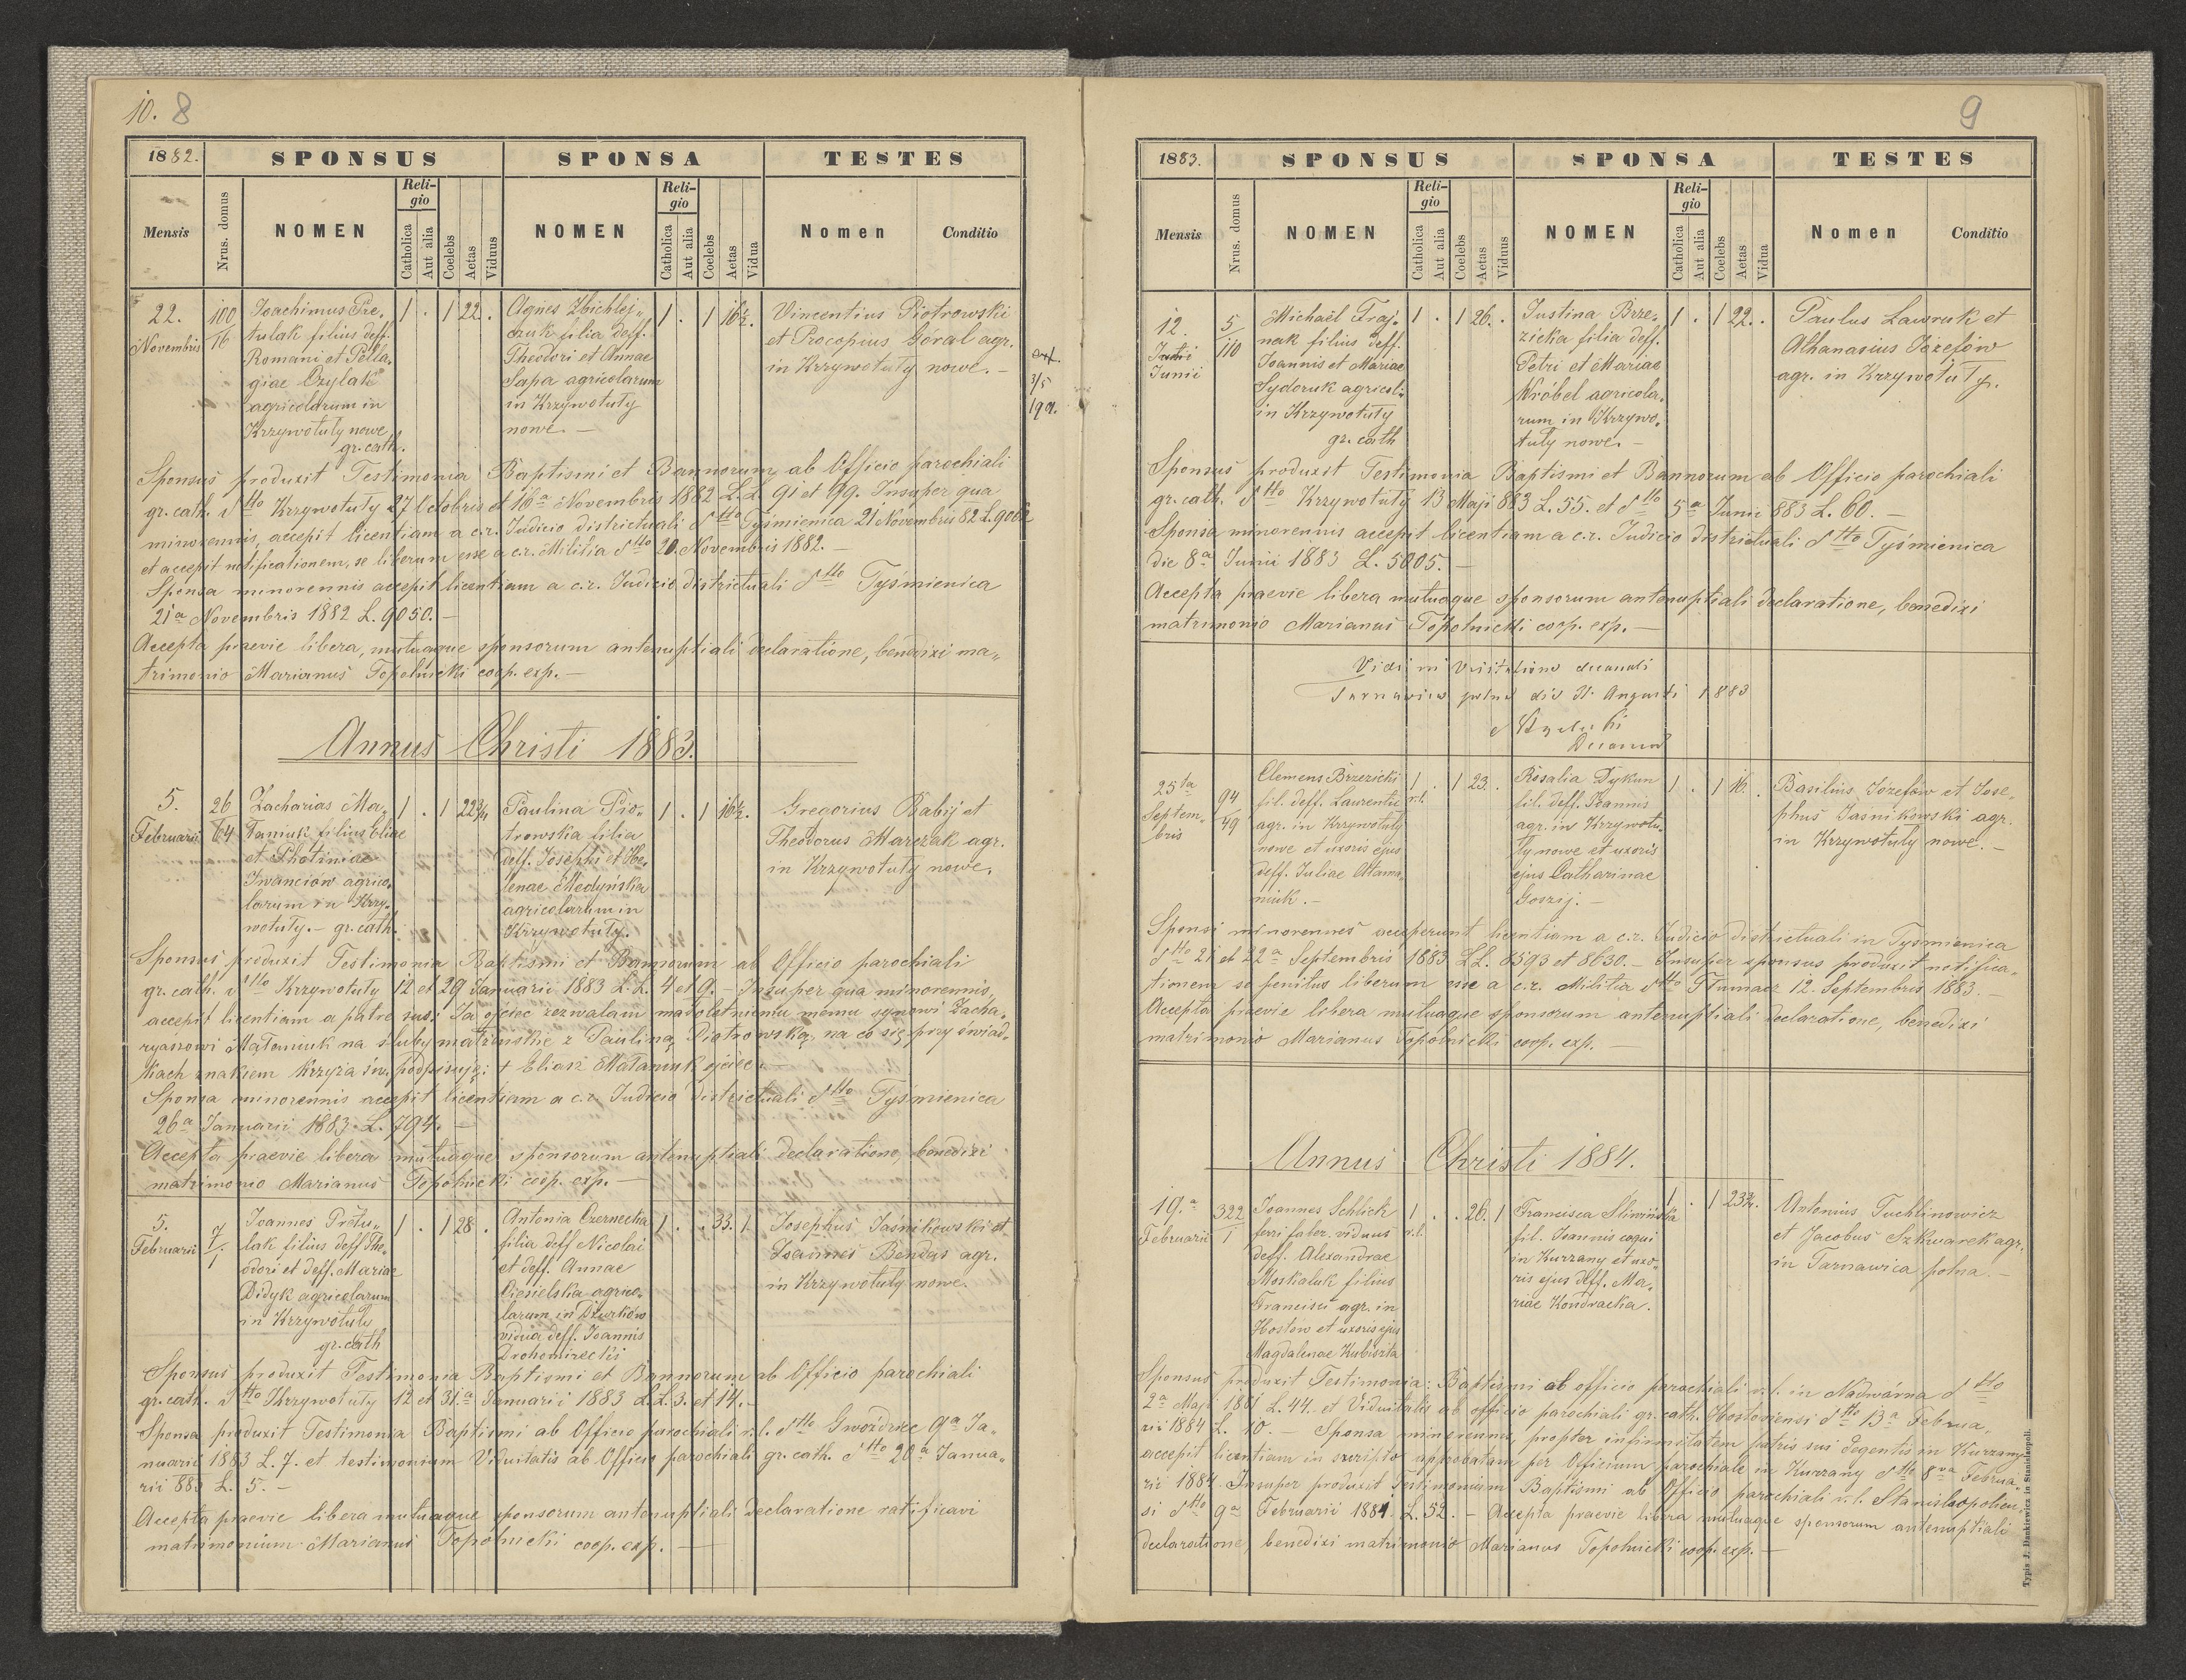 10. 8
1882. SPONSUS SPONSA TESTES
Mensis Nrus. domus NOMEN Religio Catholica Aut alia Coelebs Aetas Viduus NOMEN Religio Catholica Aut alia Coelebs Aetas Vidua Nomen Conditio
22. Novembris
100/76
Joachimus Pre-
tulak filius deff.
Romani et Pella-
giae Czylak
agricolarum in
Krzywotuły nowe
gr. cath.
1 . 1 22 .
Agnes Zbichlej-
czuk filia deff.
Theodori et Annae
Sapa agricolarum
in Krzywotuły
nowe. —
1 . 1 16½ .
Vincentius Piotrowski
et Procopius Góral agr.
in Krzywotuły nowe. —
ext.
3/5
Sponsus produxit Testimonia Baptismi et Bannorum ab Officio parochiali
gr. cath. dtto Krzywotuły 27 Octobris et 16a Novembris 1882 L.L. 91 et 99. Insuper qua
minorennis, accepit licentiam a c.r. Judicio districtuali dtto Tyśmienica 21 Novembris 82 L. 9062
et accepit notificationem, se liberum esse a c.r. Militia dtto 20. Novembris 1882. —
Sponsa minorennis accepit licentiam a c.r. Judicio districtuali dtto Tyśmienica
21a Novembris 1882 L. 9050. —
Accepta praevie libera, mutuaque sponsorum antenuptiali declaratione, benedixi ma-
trimonio Marianus Topolnicki coop. exp. —
Annus Christi 1883.
5. Februarii
26/64
Zacharias Ma-
tamuk filius Eliae
et Photiniae
Iwanciów agrico-
larum in Krzy-
wotuły. — gr. cath.
1 . 1 22¾ .
Paulina Pio-
trowska filia
deff. Josephi et He-
lenae Medyńska
agricolarum in
Krzywotuły.
1 . 1 16½ .
Gregorius Babij et
Theodorus Marczak agr.
in Krzywotuły nowe.
Sponsus produxit Testimonia Baptismi et Bannorum ab Officio parochiali
gr. cath. dtto Krzywotuły 12 et 29 Januarii 1883 L.L. 4 et 9. — Insuper qua minorennis,
accepit licentiam a patre suo: Ja ojciec zezwalam małoletniemu memu synowi Zacha-
ryaszowi Matamuk na śluby małżeńskie z Pauliną Piotrowską, na co się przy świad-
kach znakiem krzyża św. podpisuję: + Eliasz Matamuk ojciec —
Sponsa minorennis accepit licentiam a c.r. Judicio districtuali dtto Tyśmienica
26a Januarii 1883 L. 794. —
Accepta praevie libera mutuaque sponsorum antenuptiali declaratione, benedixi
matrimonio Marianus Topolnicki coop. exp. —
5. Februarii
7/1
Joannes Pretu-
lak filius deff The-
odori et deff. Mariae
Didyk agricolarum
in Krzywotuły
gr. cath
1 . 1 28 .
Antonia Czernecka
filia deff Nicolai
et deff. Annae
Ciesielska agrico-
larum in Dżurków
vidua deff. Joannis
Drohomirecki
1 . . 33. 1
Josephus Jaśnikowski et
Joannes Bendas agr.
in Krzywotuły nowe.
Sponsus produxit Testimonia Baptismi et Bannorum ab Officio parochiali
gr. cath. dtto Krzywotuły 12 et 31.a Januarii 1883 L.L. 3. et 14. —
Sponsa produxit Testimonia Baptismi ab Officio parochiali r. l. dtto Gwoździec 9a Ja-
nuarii 1883 L. 7. et testimonium Viduitatis ab Officio parochiali gr. cath. dtto 20a Janua-
rii 883 L. 5. —
Accepta praevie libera mutuaque sponsorum antenuptiali declaratione ratificavi
matrimonium Marianus Topolnicki coop. exp. —
9
1883. SPONSUS SPONSA TESTES
Mensis Nrus. domus NOMEN Religio Catholica Aut alia Coelebs Aetas Viduus NOMEN Religio Catholica Aut alia Coelebs Aetas Vidua Nomen Conditio
12.
Junii
5/110
Michaël Fraj-
nak filius deff.
Joannis et Mariae
Sydoruk agricol.
in Krzywotuły
gr. cath
1 . 1 26. .
Justina Brze-
zicka filia deff.
Petri et Mariae
Wróbel agricola-
rum in Krzywo-
tuły nowe. —
1 . 1 22. .
Paulus Ławruk et
Athanasius Józefów
agr. in Krzywotuły.
Sponsus produxit Testimonia Baptismi et Bannorum ab Officio parochiali
gr. cath. dtto Krzywotuły 13 Maji 883 L. 55. et dtto 5a Junii 883 L. 60. —
Sponsa minorennis accepit licentiam a c.r. Judicio districtuali dtto Tyśmienica
die 8a Junii 1883 L. 5005. —
Accepta praevie libera mutuaque sponsorum antenuptiali declaratione, benedixi
matrimonio Marianus Topolnicki coop. exp. —
Vidi in visitatione decanali
Tarnawica polna die 31. Augusti 1883
Decanus
25ta
Septem-
bris
94/49
Clemens Brzezicki
fil. deff. Laurentii
agr. in Krzywotuły
nowe et uxoris ejus
deff. Juliae Atama-
niuk. —
1 r.l. . 1 23. .
Rosalia Dykun
fil. deff. Joannis
agr. in Krzywotu-
ły nowe et uxoris
ejus Catharinae
Goszij. —
1 . 1 16. .
Basilius Józefów et Jose-
phus Jaśnikowski agr.
in Krzywotuły nowe. —
Sponsi minorennes acceperunt licentiam a c.r. Judicio districtuali in Tyśmienica
dtto 21 et 22a Septembris 1883 L.L. 8593 et 8630. — Insuper sponsus produxit notifica-
tionem se penitus liberum esse a c.r. Militia dtto Tłumacz 12. Septembris 1883. —
Accepta praevie libera mutuaque sponsorum antenuptiali declaratione, benedixi
matrimonio Marianus Topolnicki coop. exp. —
Annus Christi 1884.
19.a
Februarii
322/1
Joannes Schlick
ferri faber, viduus
deff. Alexandrae
Moskaluk filius
Francisci agr. in
Hostów et uxoris ejus
Magdalenae Kubiszta
1 r.l. . . 26. 1
Francisca Śliwińska
fil. Joannis coqui
in Kurzany et uxo-
ris ejus deff. Ma-
riae Kondracka.
1 . 1 23¾ .
Antonius Tuchlinowicz
et Jacobus Szkwarek agr.
in Tarnawica polna. —
Sponsus produxit Testimonia: Baptismi ab officio parochiali r. l. in Nadwórna dtto
2a Maji 1881 L. 44. et Viduitatis ab officio parochiali gr. cath. Hostoviensi dtto 13a Februa-
rii 1884 L. 10. — Sponsa minorennis, propter infirmitatem patris sui degentis in Kurzany
accepit licentiam in scripto approbatam per Officium parochiale in Kurzany dtto 8va Februa-
rii 1884. Insuper produxit Testimonium Baptismi ab Officio parochiali r. l. Stanislaopolien-
si dtto 9a Februarii 1884. L. 52. — Accepta praevie libera mutuaque sponsorum antenuptiali
declaratione, benedixi matrimonio Marianus Topolnicki coop. exp. —
Typis J. Dankiewicz in Stanislaopoli.